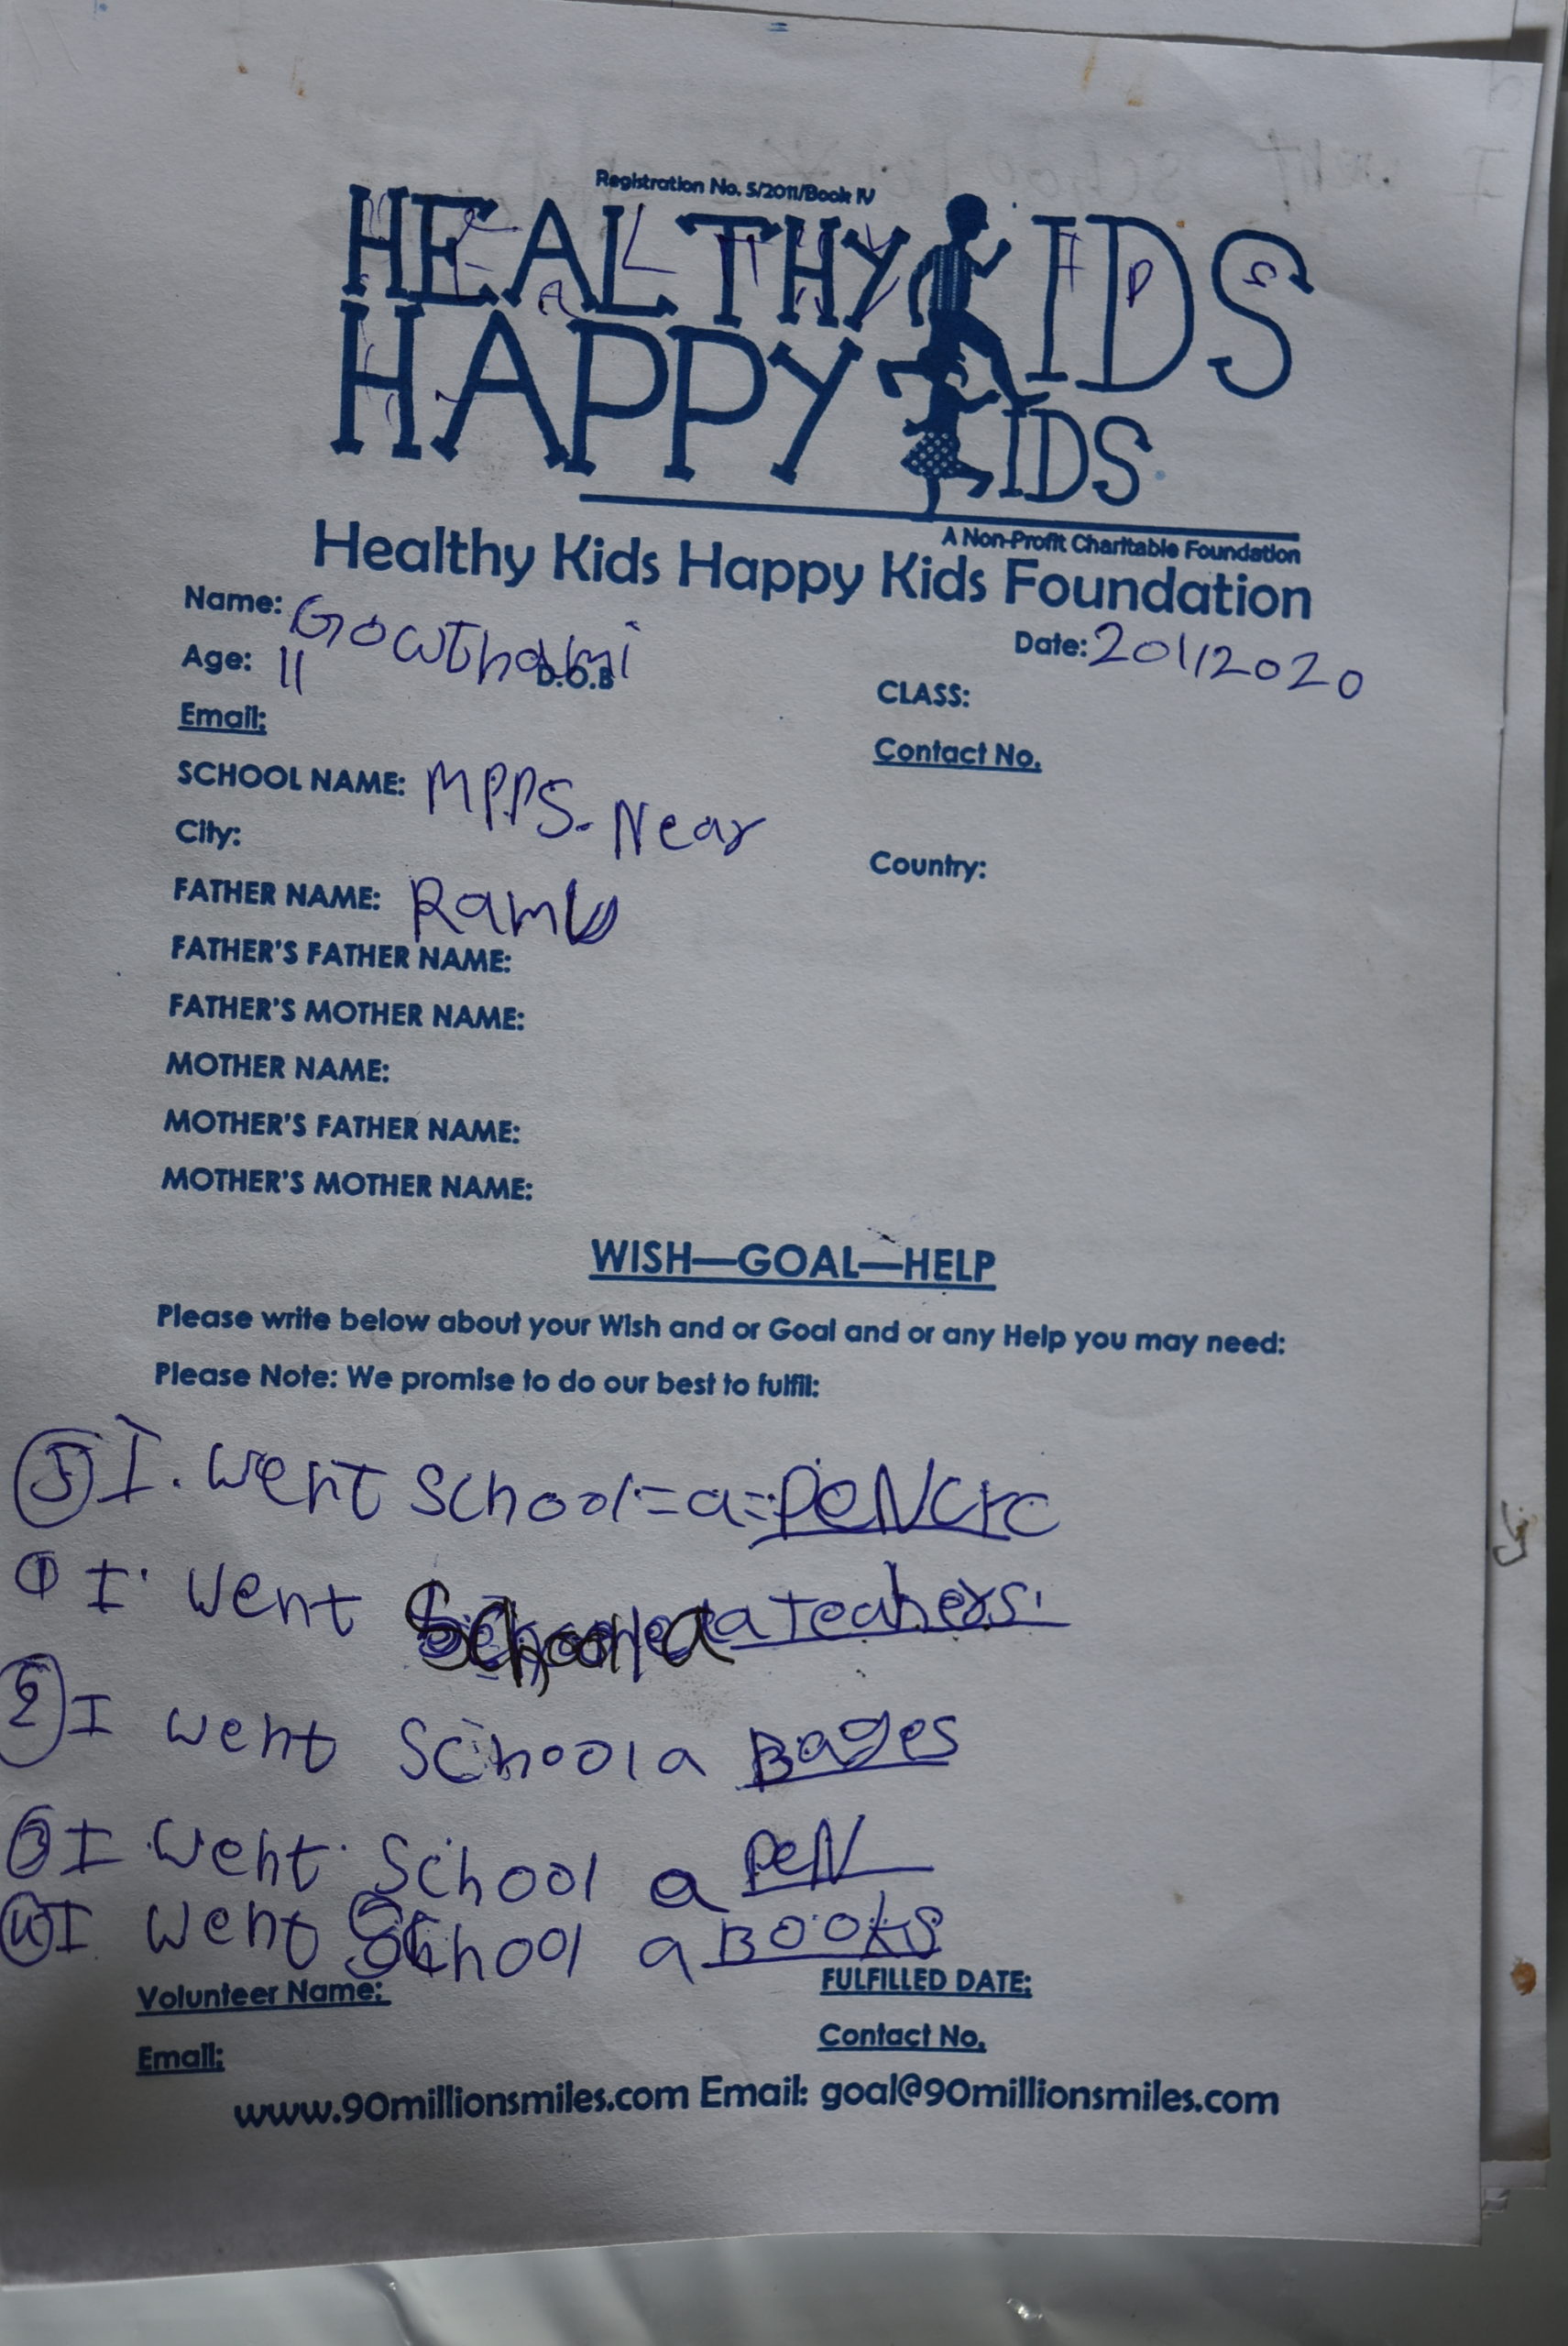 Registration No. 5/2011/Book IV
HEALTHY KIDS
HAPPY KIDS
A Non-Profit Charitable Foundation
Healthy Kids Happy Kids Foundation
Name: Gowthami
Date: 20112020
Age: 11 D.O.B
CLASS:
Email:
Contact No.
SCHOOL NAME: MPPS. Near
City:
Country:
FATHER NAME: Ramu
FATHER'S FATHER NAME:
FATHER'S MOTHER NAME:
MOTHER NAME:
MOTHER'S FATHER NAME:
MOTHER'S MOTHER NAME:
WISH—GOAL—HELP
Please write below about your Wish and or Goal and or any Help you may need:
Please Note: We promise to do our best to fulfil:
5 I. went School=a=
1 I. went School a a Teahers.
2 I went School a Bages
3 I went School a PeN
4 I went School a Books
Volunteer Name:
FULFILLED DATE:
Email:
Contact No.
www.90millionsmiles.com Email: goal@90millionsmiles.com